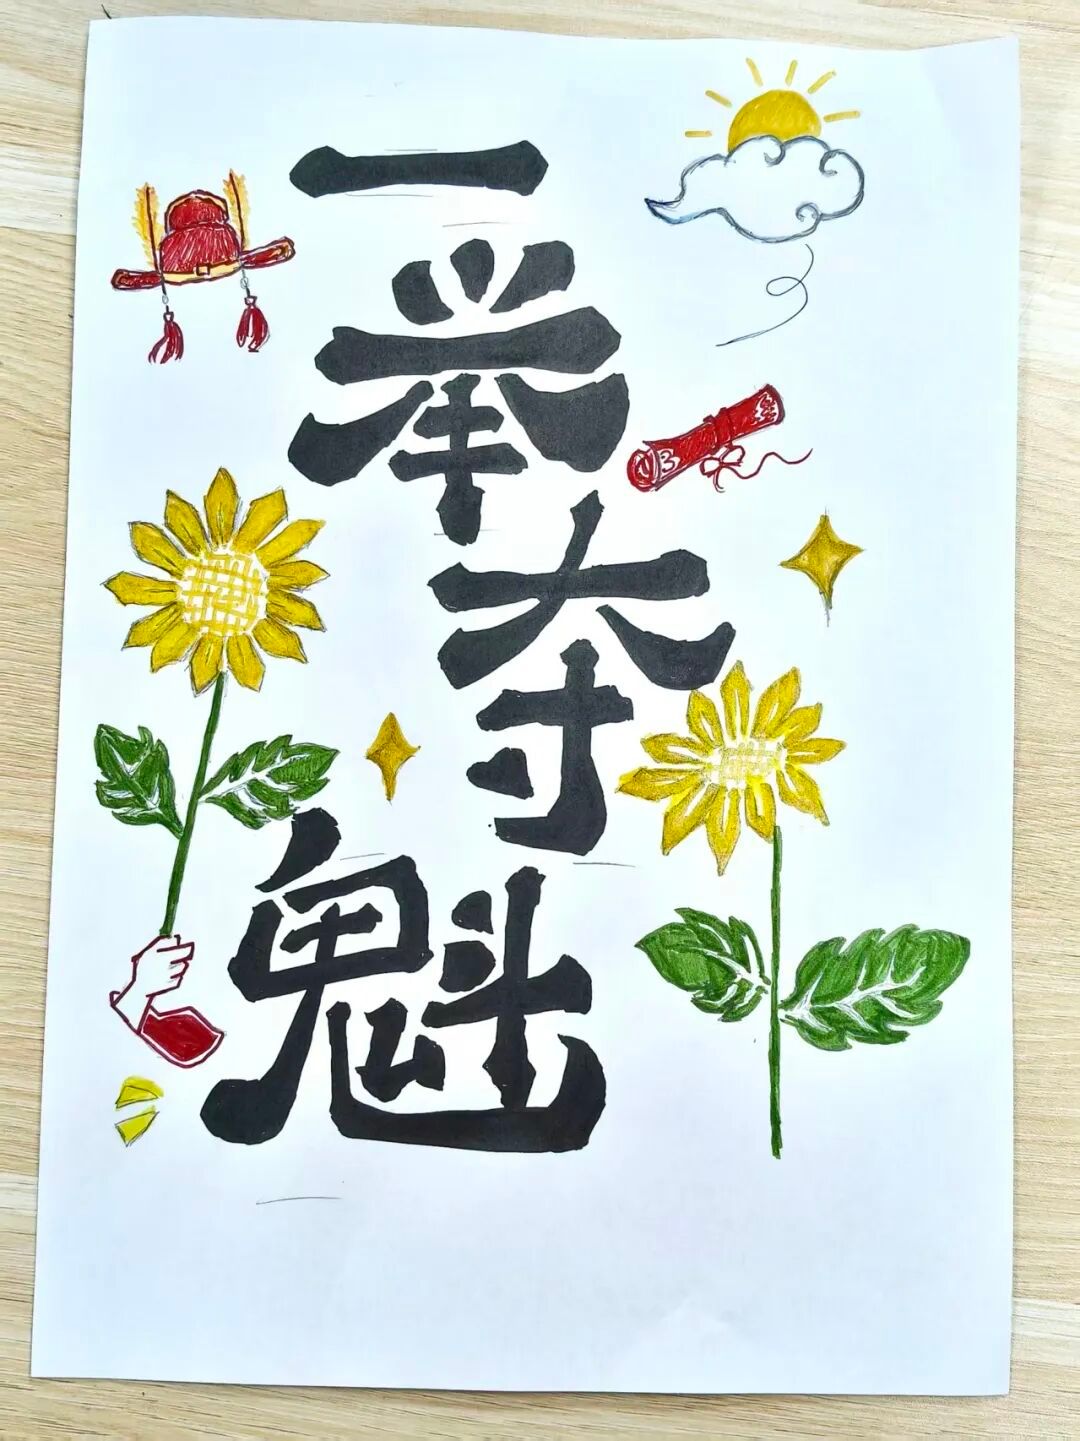 一
举
夺
魁